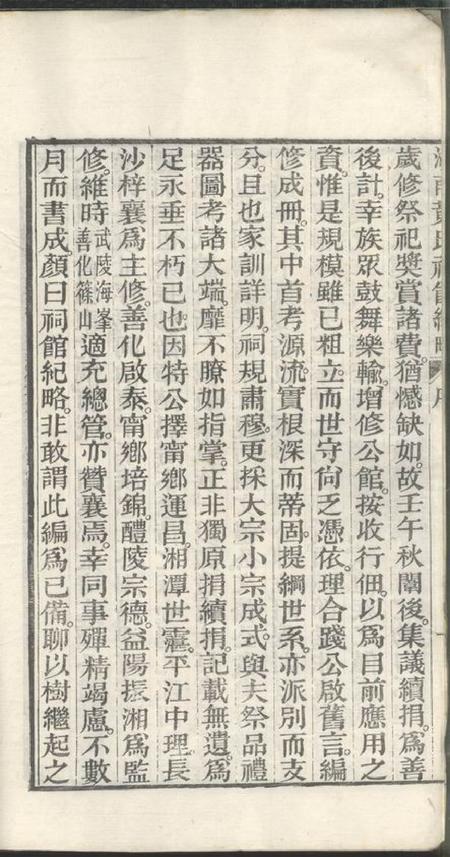 湖南黃氏祠館紀略 序
歲修祭祀獎賞諸費。猶憾缺如。故壬午秋闈後。集議續捐。爲善
後計。幸族眾鼓舞樂輸。增修公館。按收行佃。以爲目前應用之
資。惟是規模雖已粗立。而世守尙乏憑依。理合踐公啟舊言。編
修成冊。其中首考源流。實根深而蒂固。提綱世系。亦派別而支
分。且也家訓詳明。祠規肅穆。更採大宗小宗成式。與夫祭品禮
器圖考諸大端。靡不瞭如指掌。正非獨原捐續捐。記載無遺。爲
足永垂不朽已也。因特公擇甯鄉運昌。湘潭世靇。平江中理。長
沙梓襄爲主修。善化啟泰。甯鄉培錦。醴陵宗德。益陽振湘爲監
修。維時武陵海峯善化篠山適充總管。亦贊襄焉。幸同事殫精竭慮。不數
月而書成。顏曰祠館紀略。非敢謂此編爲已備。聊以樹繼起之